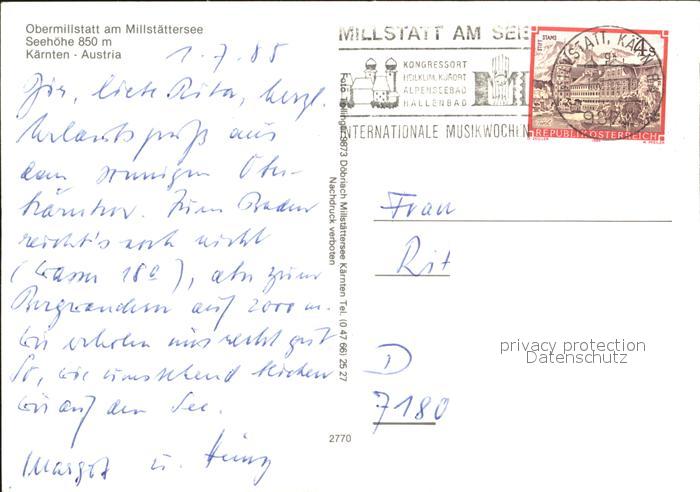 Obermillstatt am Millstättersee
Seehöhe 850 m
Kärnten - Austria
1.7.85
Dir, liebe Rita, herzl.
Urlaubsgruß aus
dem sonnigen Ober-
kärnten. Zum Baden
reicht's noch nicht
(Wasser 18°), aber zum
Bergwandern auf 2000 m.
Wir erholen uns recht gut
So, wie umstehend blicken
wir auf den See.
Margot u.
Foto 9873 Döbriach Millstättersee Kärnten Tel. (0 47 66) 25 27
Nachdruck verboten
2770
MILLSTATT AM SEE
KONGRESSORT
HEILKLIM. KURORT
ALPENSEEBAD
HALLENBAD
INTERNATIONALE MUSIKWOCHEN
STIFT STAMS
4 S
REPUBLIK ÖSTERREICH
Frau
Rit
D
7180
privacy protection
Datenschutz